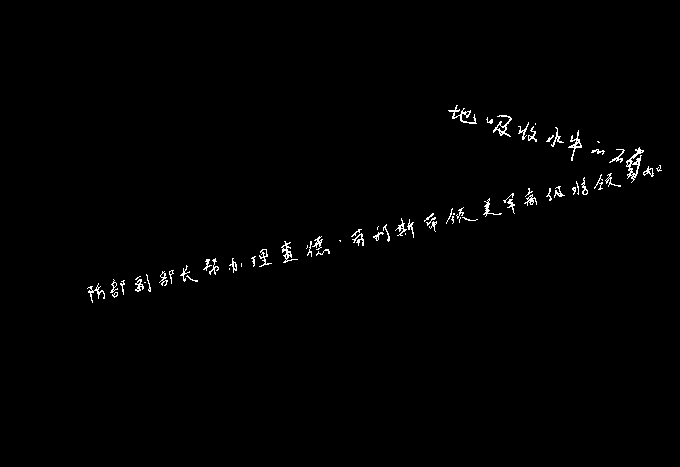 地吸收水牛
防部副部长帮办理查德·劳利斯带领美军高级将领